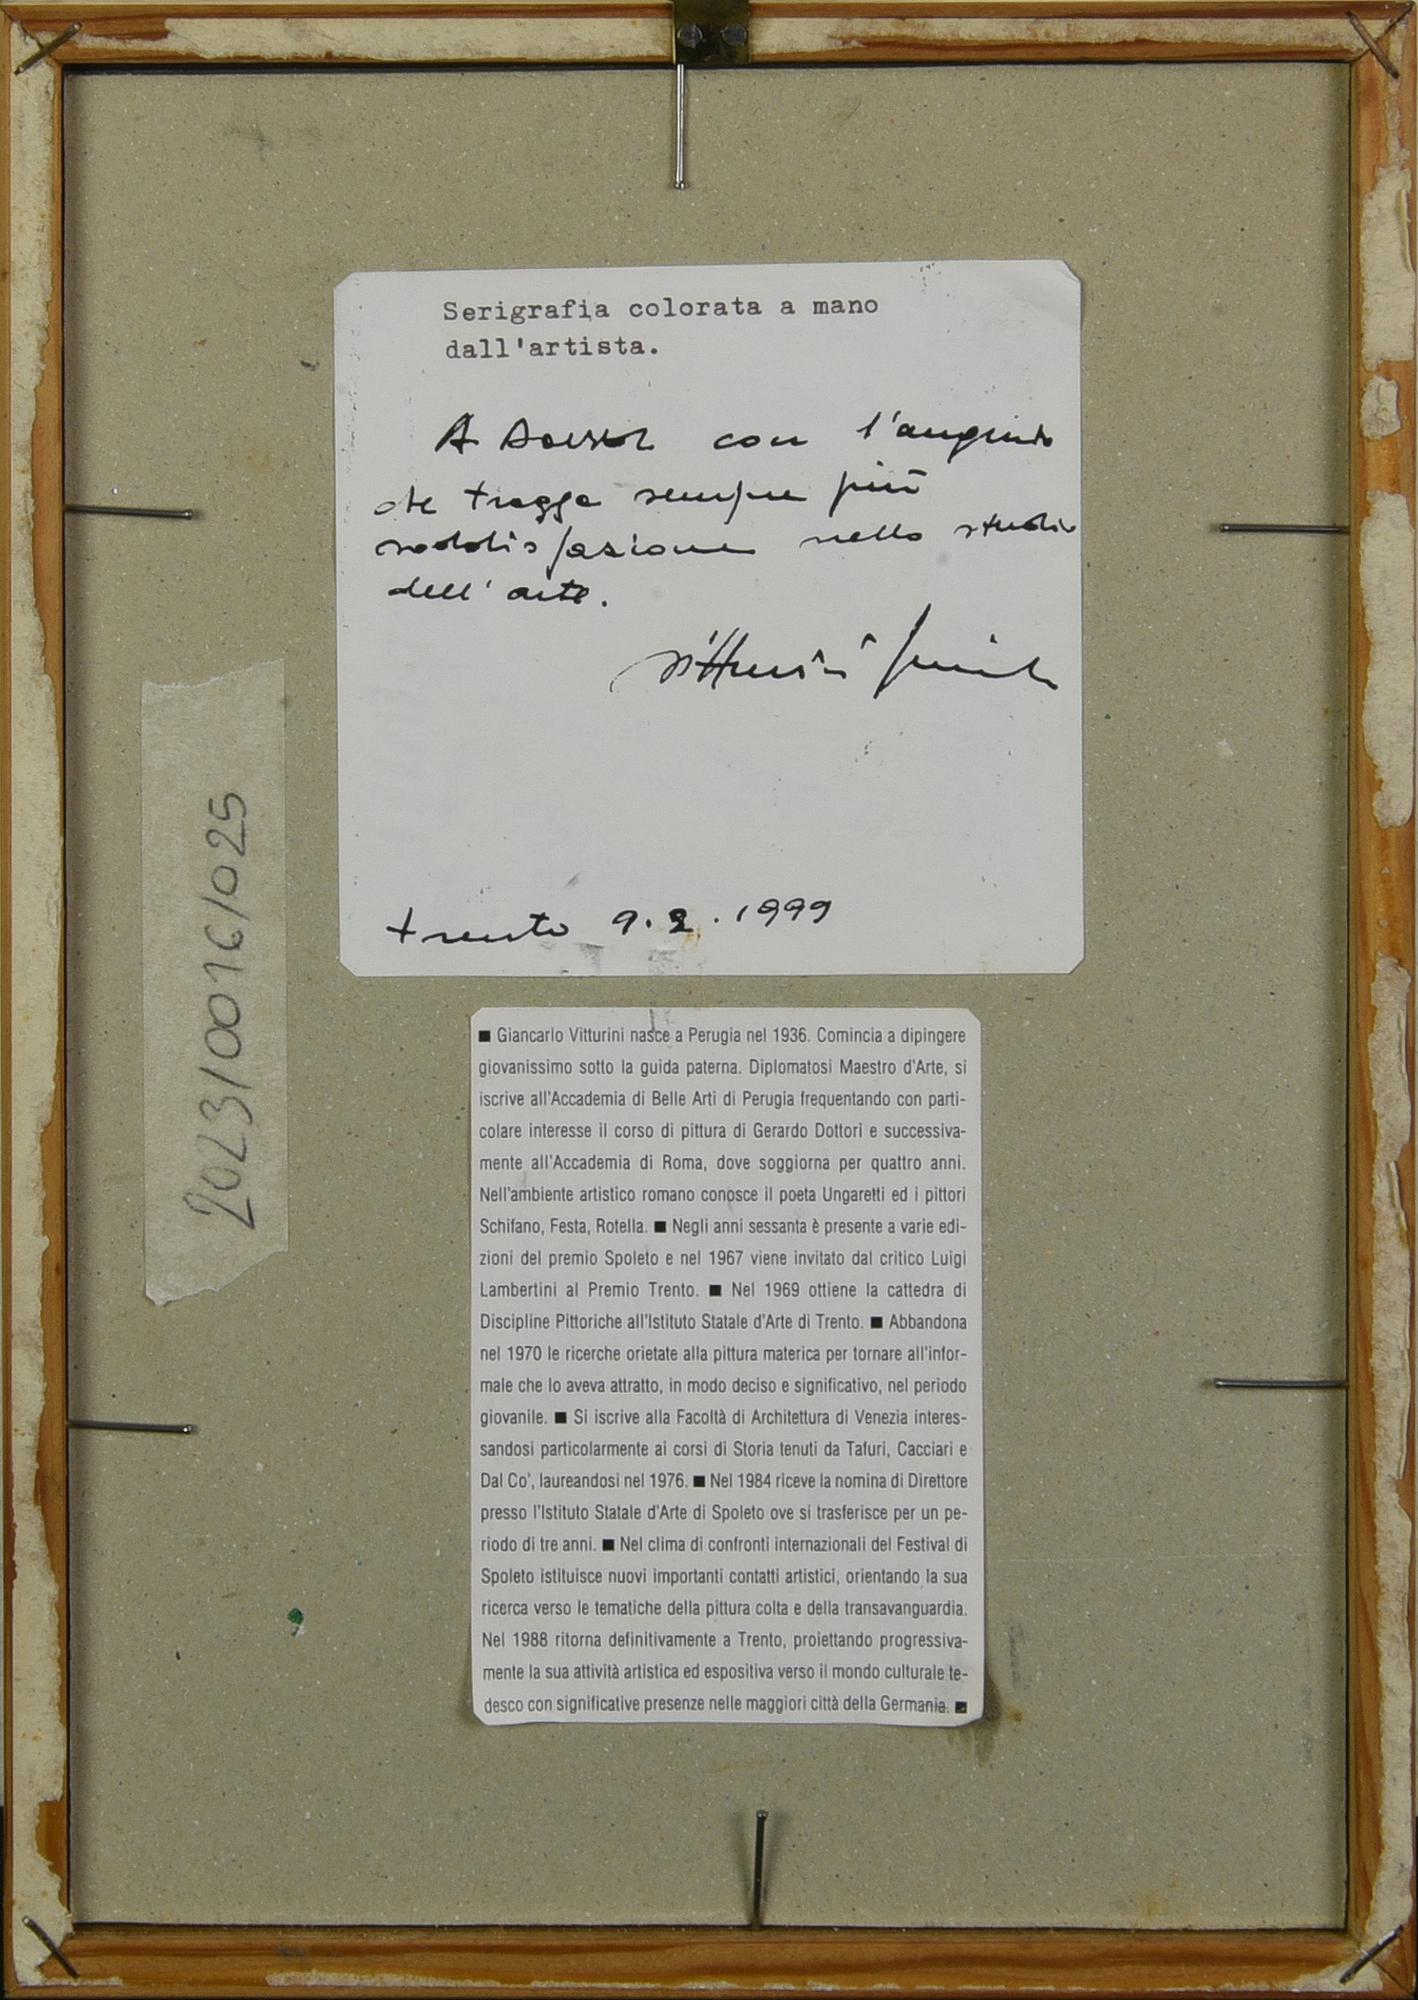 Serigrafia colorata a mano
dall'artista.
A con l'augurio
che tragga sempre più
soddisfazione nello studio
dell'arte.
Vitturini
Trento 9.2.1999
2023/0016/025
■ Giancarlo Vitturini nasce a Perugia nel 1936. Comincia a dipingere
giovanissimo sotto la guida paterna. Diplomatosi Maestro d'Arte, si
iscrive all'Accademia di Belle Arti di Perugia frequentando con parti-
colare interesse il corso di pittura di Gerardo Dottori e successiva-
mente all'Accademia di Roma, dove soggiorna per quattro anni.
Nell'ambiente artistico romano conosce il poeta Ungaretti ed i pittori
Schifano, Festa, Rotella. ■ Negli anni sessanta è presente a varie edi-
zioni del premio Spoleto e nel 1967 viene invitato dal critico Luigi
Lambertini al Premio Trento. ■ Nel 1969 ottiene la cattedra di
Discipline Pittoriche all'Istituto Statale d'Arte di Trento. ■ Abbandona
nel 1970 le ricerche orietate alla pittura materica per tornare all'infor-
male che lo aveva attratto, in modo deciso e significativo, nel periodo
giovanile. ■ Si iscrive alla Facoltà di Architettura di Venezia interes-
sandosi particolarmente ai corsi di Storia tenuti da Tafuri, Cacciari e
Dal Co', laureandosi nel 1976. ■ Nel 1984 riceve la nomina di Direttore
presso l'Istituto Statale d'Arte di Spoleto ove si trasferisce per un pe-
riodo di tre anni. ■ Nel clima di confronti internazionali del Festival di
Spoleto istituisce nuovi importanti contatti artistici, orientando la sua
ricerca verso le tematiche della pittura colta e della transavanguardia.
Nel 1988 ritorna definitivamente a Trento, proiettando progressiva-
mente la sua attività artistica ed espositiva verso il mondo culturale te-
desco con significative presenze nelle maggiori città della Germania. ■